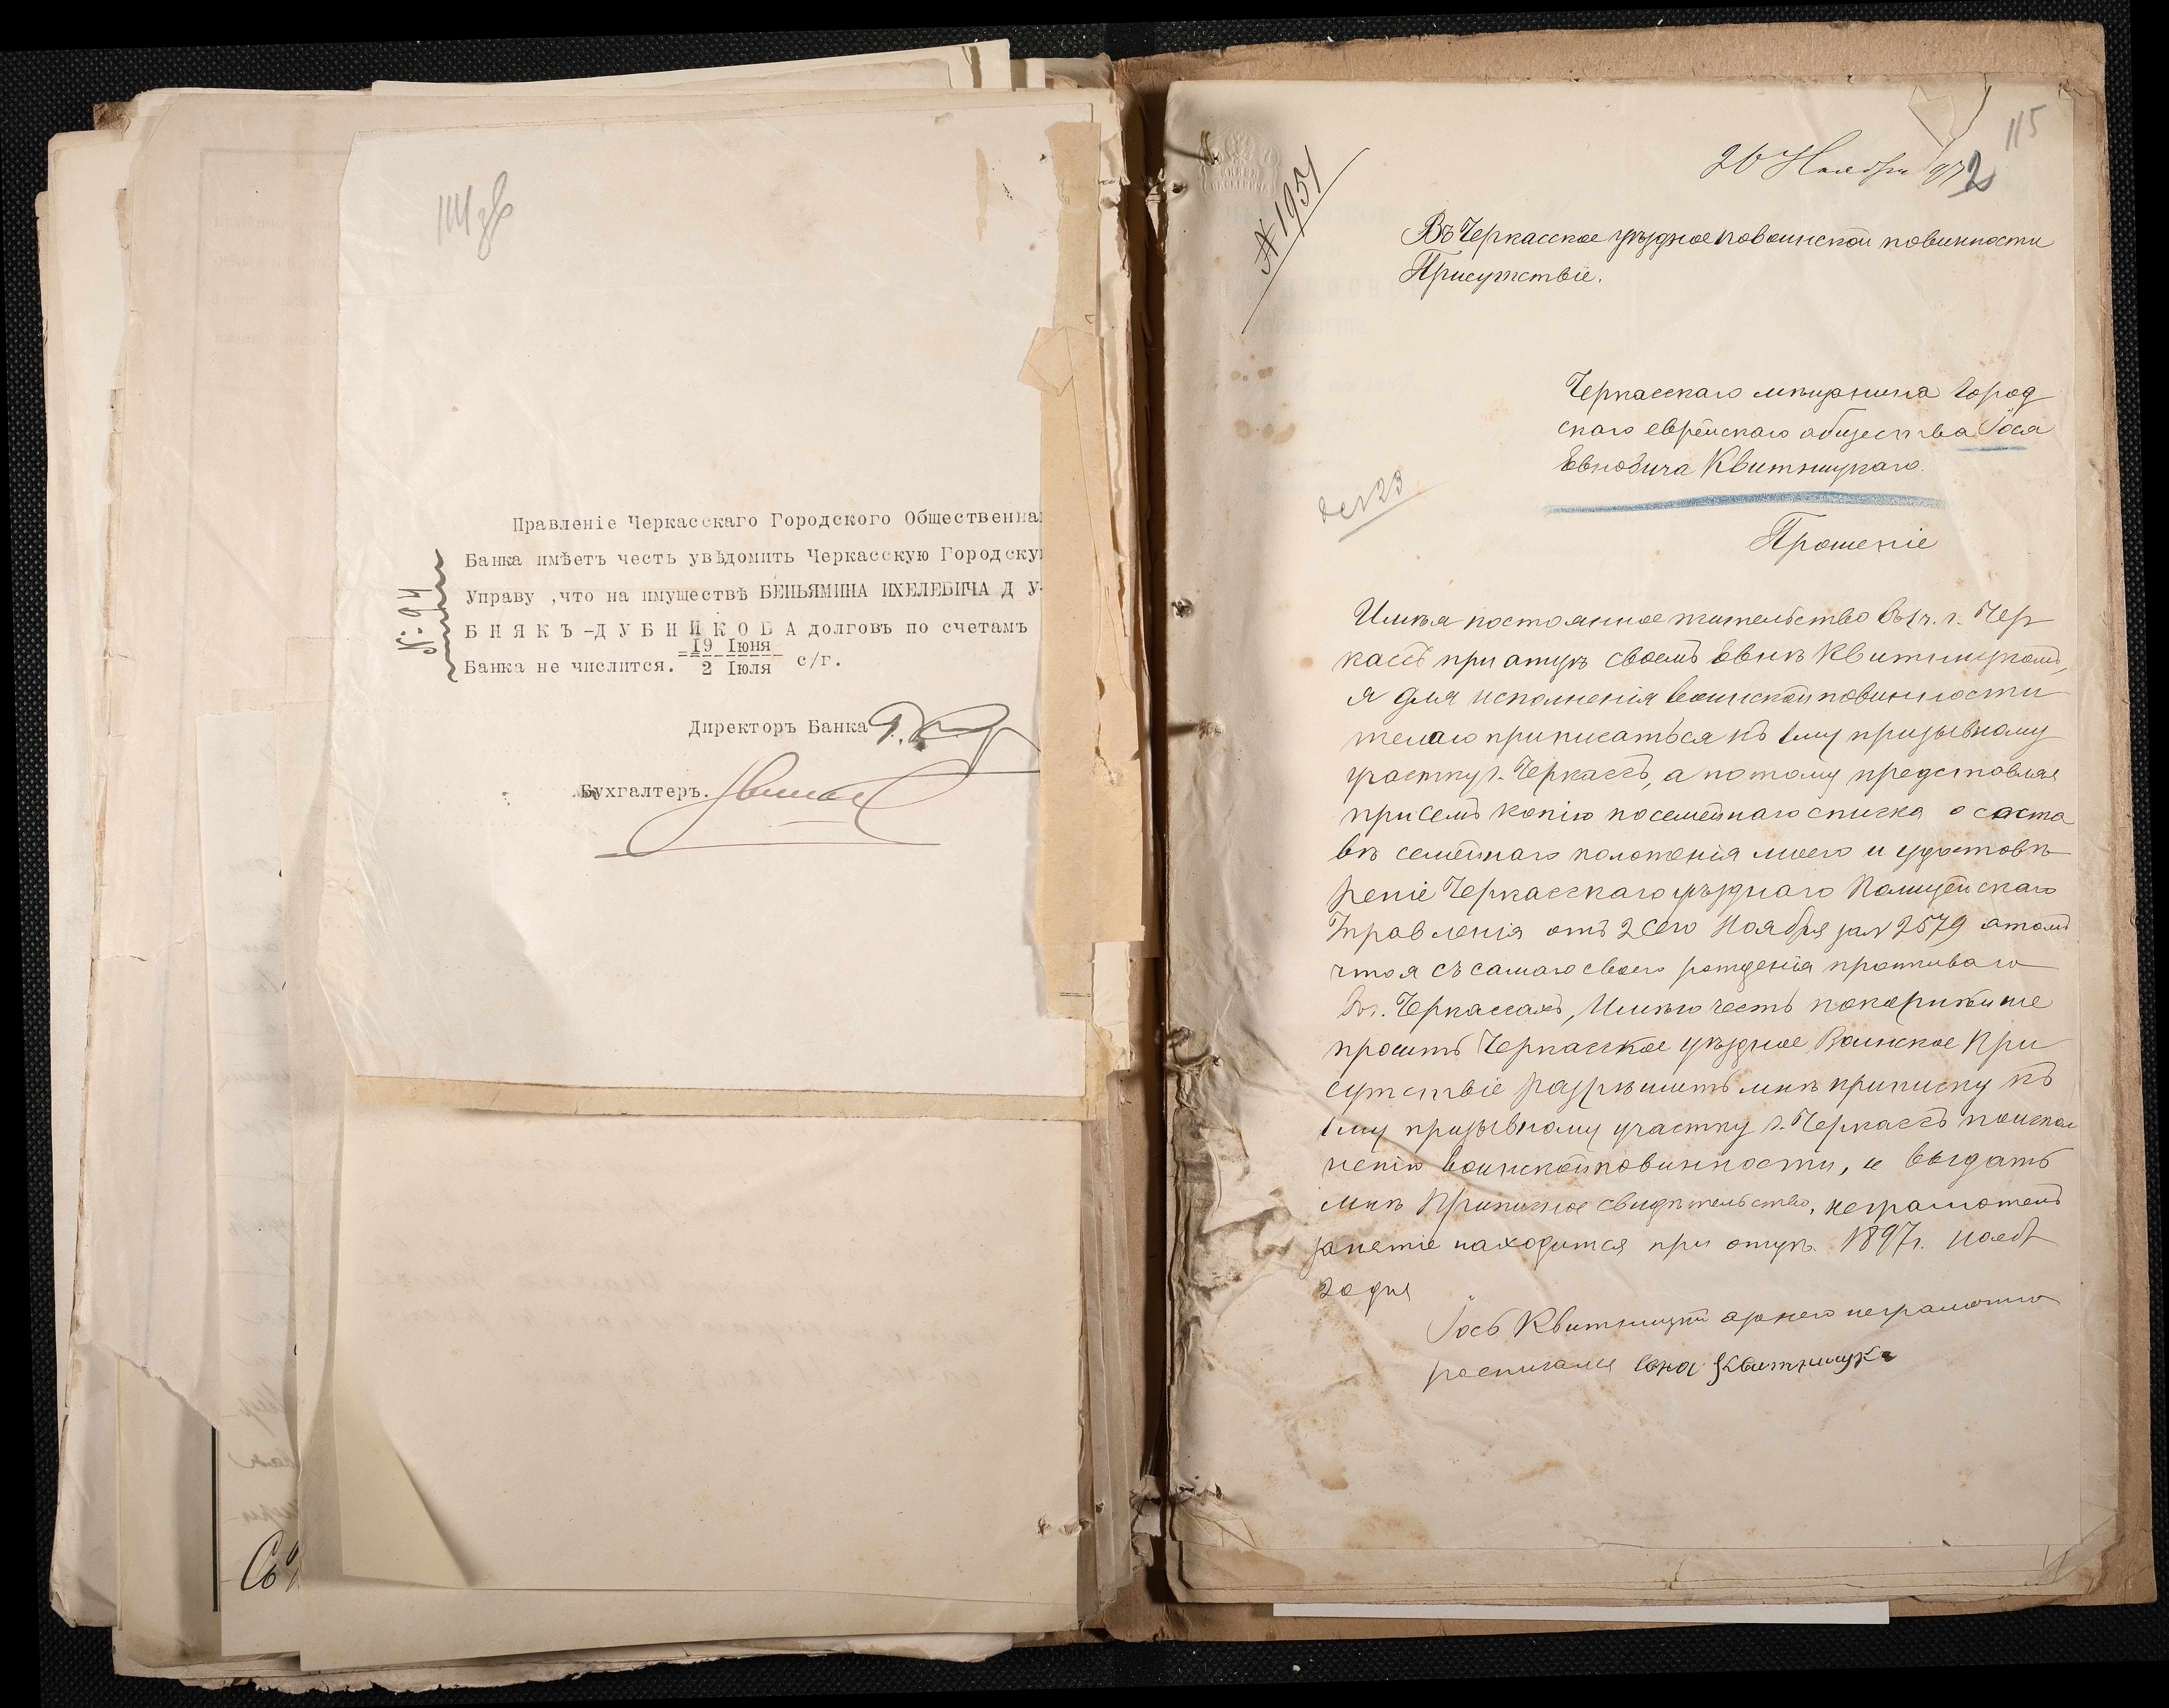 111 зв
Правленіе Черкасскаго Городского Общественна
Банка имѣетъ честь увѣдомить Черкасскую Городску
Управу ,что на имуществѣ БЕНЬЯМИНА ИХЕЛЕВИЧА Д У-
Б Н Я К Ъ -Д У Б Н И К О В А долговъ по счетамъ
Банка не числится. 19 Іюня / 2 Іюля с/г.
№: 94
Директоръ Банка
Бухгалтеръ.
Съ
115
20 Ноября 97
2
№ 1951
Въ Черкасское уѣздное по воинской повинности
Присутствіе.
Черкасскаго мѣщанина Город
скаго еврейскаго общества Іося
Евновича Квитницкаго.
Прошеніе
Имѣя постоянное жительство въ г. Чер
кассѣ при отцѣ своемъ Евнѣ Квитницкомъ,
я для исполненія воинской повинности
желаю приписаться къ 1му призывному
участку г. Черкассъ, а потому представляя
при семъ копію посемейнаго списка о соста
вѣ семейнаго положенія моего и удостовѣ
реніе Черкасскаго уѣзднаго Полицейскаго
Управленія отъ 2 сего Ноября за № 2579 о томъ
что я съ самаго своего рожденія проживаю
въ г. Черкассахъ, Имѣю честь покорнѣйше
просить Черкасское уѣздное Воинское При
сутствіе разрѣшить мнѣ приписку къ
1му призывному участку г. Черкассъ по испол
ненію воинской повинности, и выдать
мнѣ Приписное свидѣтельство, неграмотенъ
занятіе находится при отцѣ. 1897г. Нояб
20 дня
Іось Квитницкій а за него неграмотно
росписался Евна Квитницкі